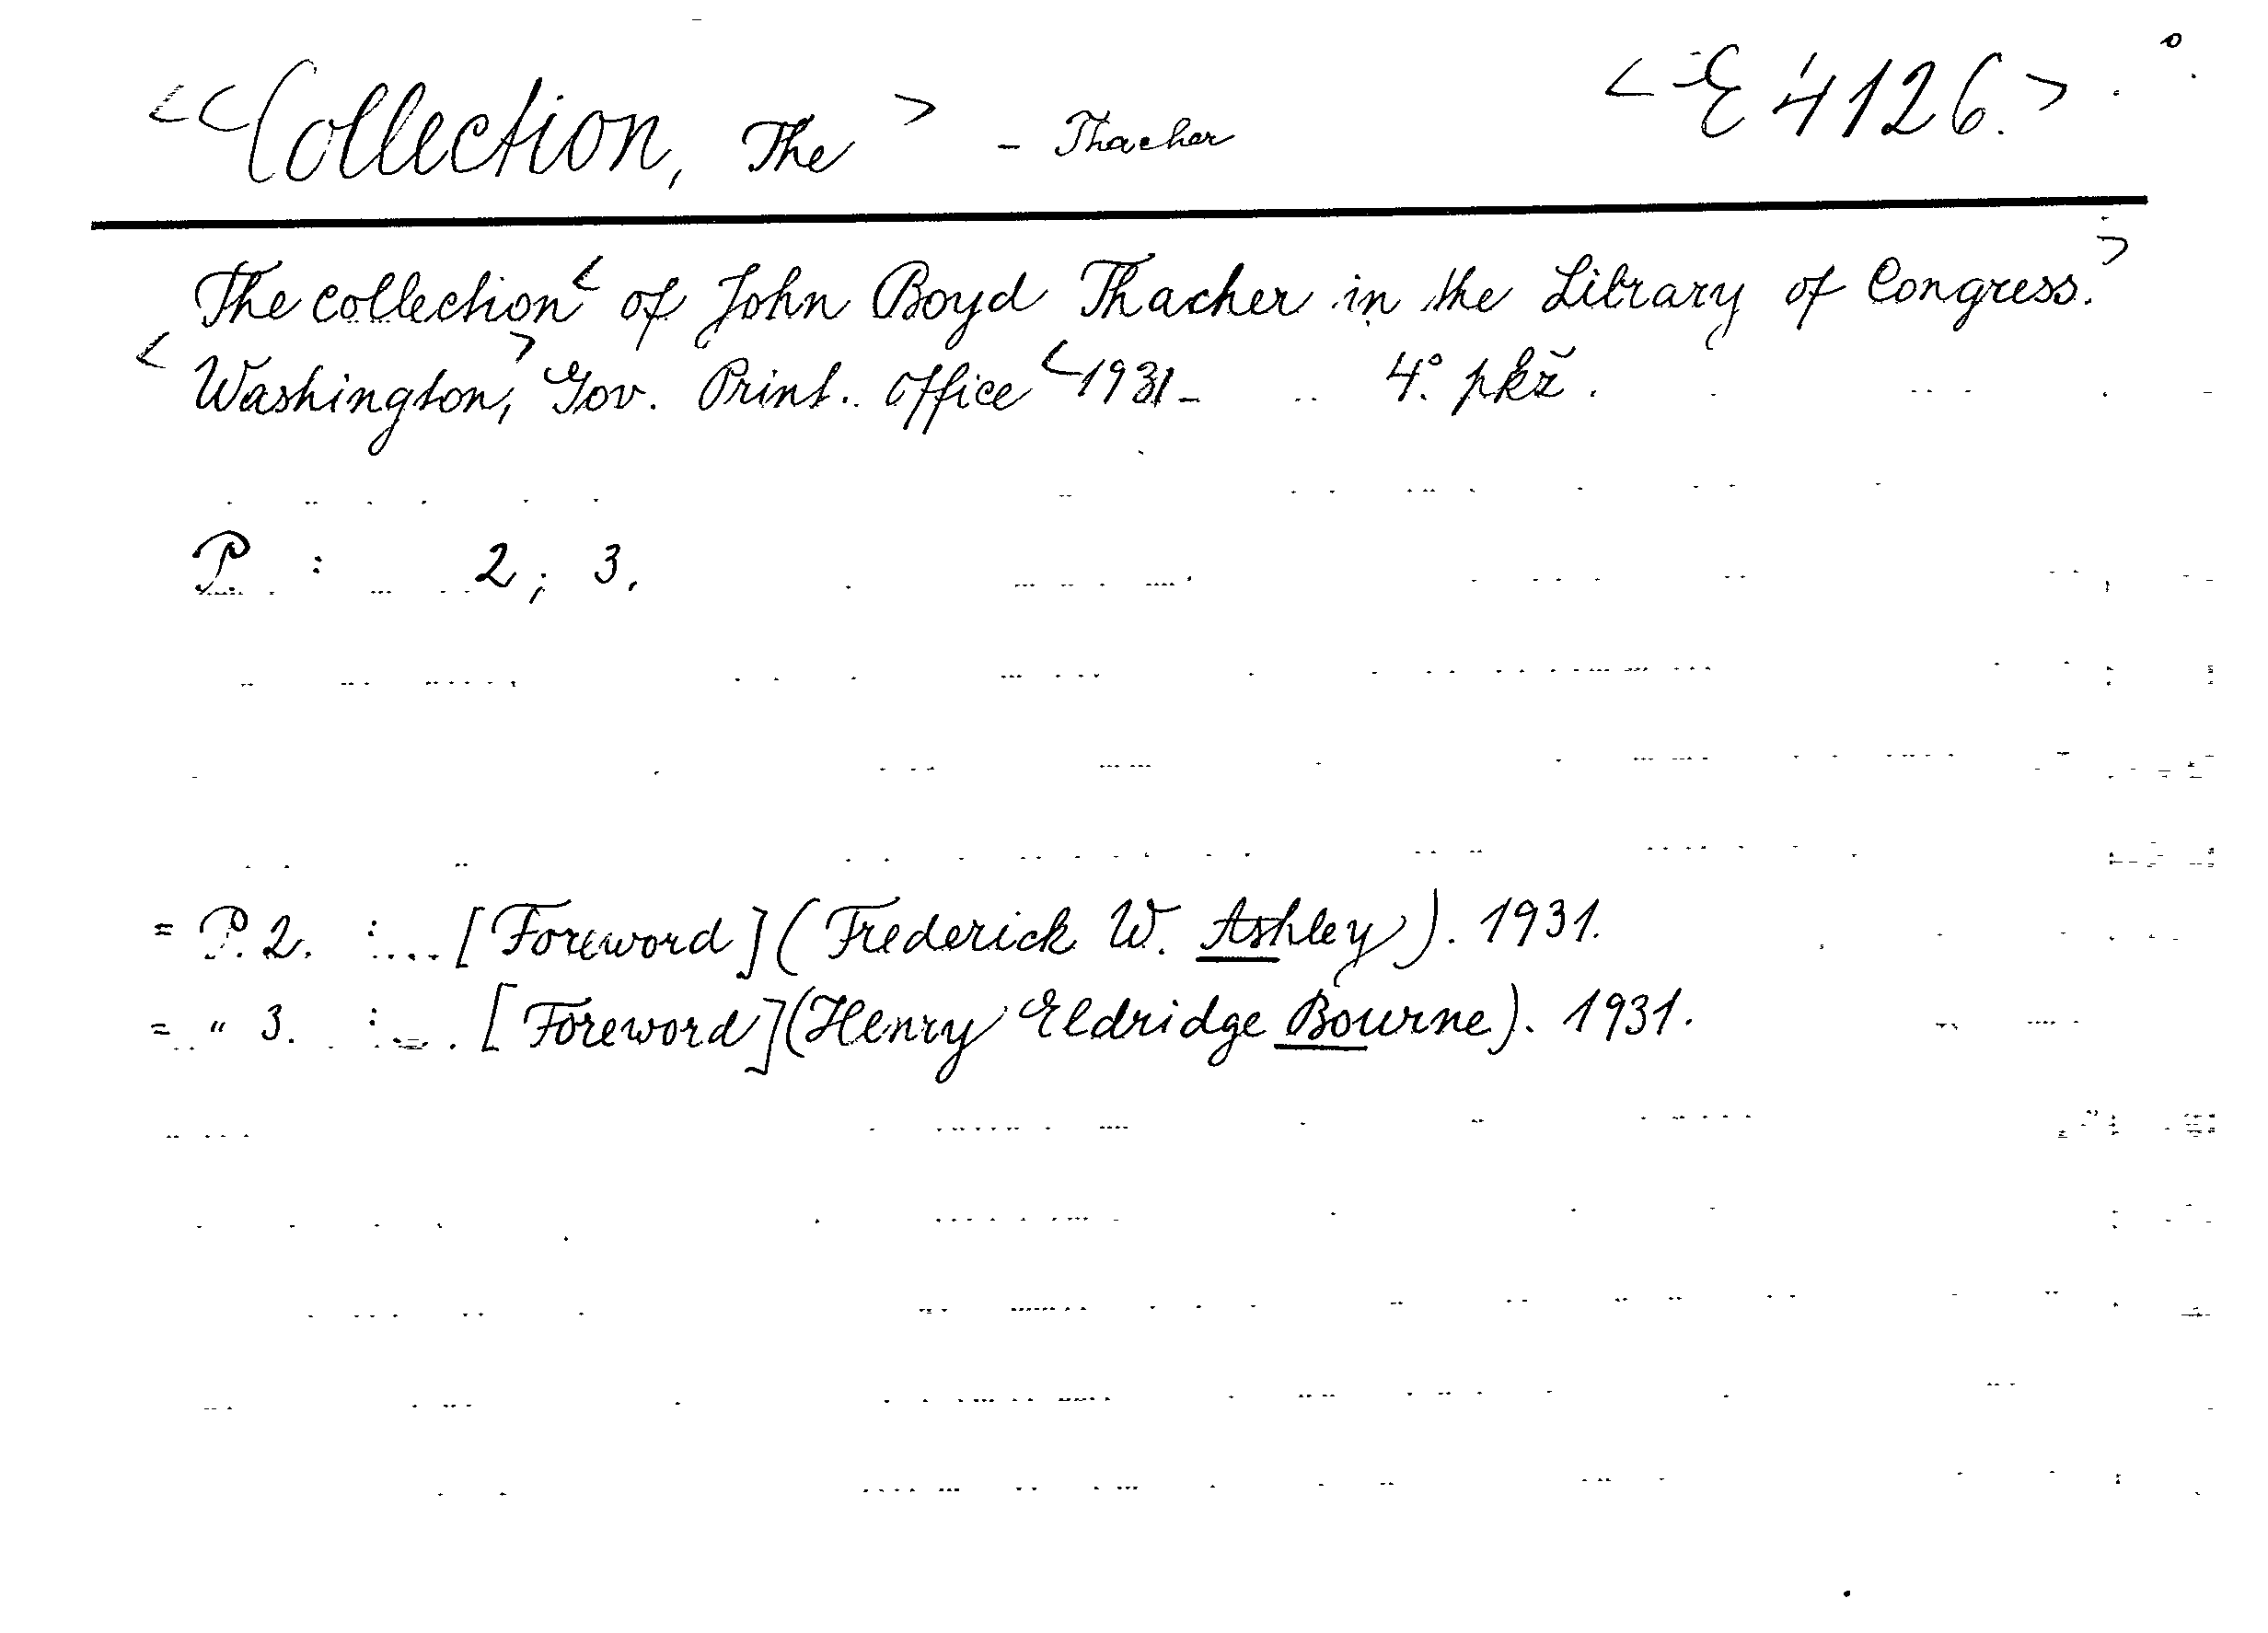 <Collection, The> - Thacher <E 4126.>
The collection< of John Boyd Thacher in the Library of Congress.>
<Washington,> Gov. Print. Office <1931- 4° pkž.
P. : 2; 3.
= P. 2. : ... [Foreword] (Frederick W. Ashley). 1931.
= " 3. : ... [Foreword] (Henry Eldridge Bourne). 1931.